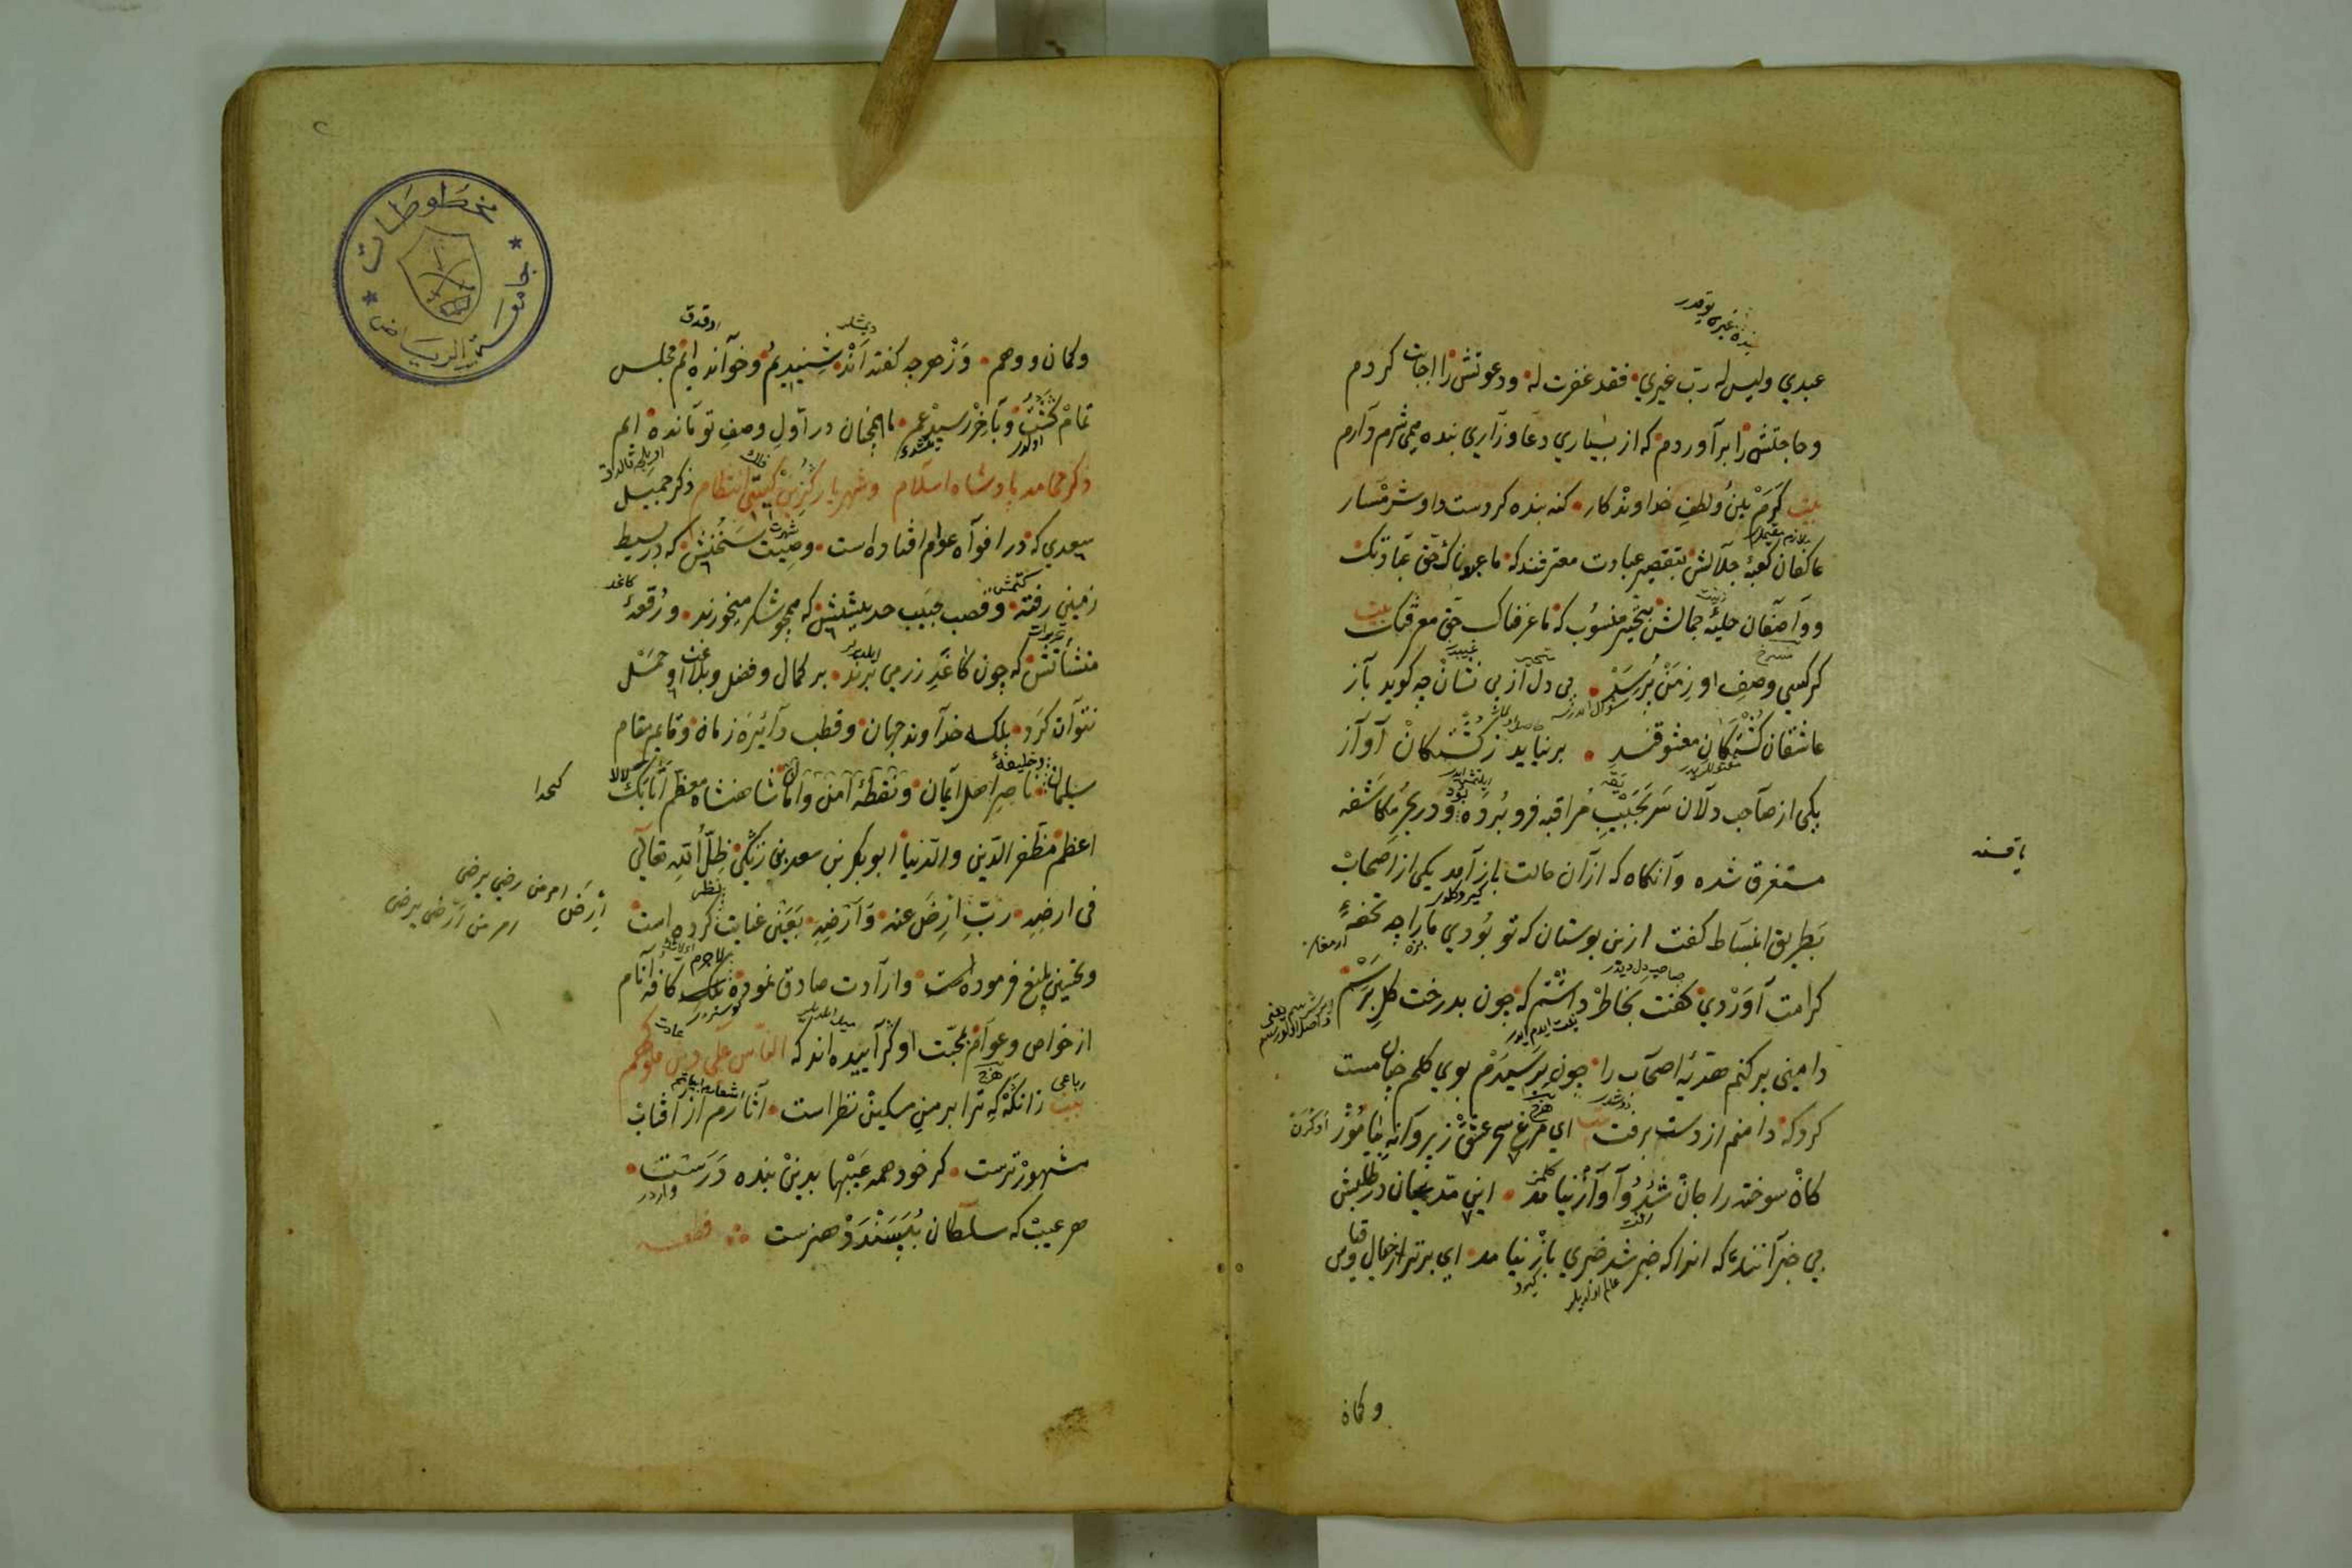 بنده غیری یوقدر
عبدي وليس له ربّ غيري فقد غفرت له ودعوتش را اجابت كردم
وحاجتش را برآوردم كه از بسياري دعا وزاري بنده ميى شرم دارم
بيت كَرَمْ بين ولطفِ خداوندكار كنه بنده كردست واو شرمسار
عاكفان كعبۀ جلالش بتقصير عبادت معترفند كه ما عبدناك حق عبادتك
وواصفان حليۀ جمالش بتحير منسوب كه ما عرفناك حق معرفتك بيت
كر كسي وصف او زمن پُرسد بى دل از بى نشان چه كويد باز
عاشقان كُشتكان معشوقند بر نيايد ز كُشتكان آواز
يكى از صاحب دلان سر بجيب مراقبه فرو برده بود ودر بحر مكاشفه
مستغرق شده وآنكاه كه ازان حالت باز آمد يكى از اصحاب
بطريق انبساط كفت ازين بوستان كه تو بودي مارا چه تحفۀ
كرامت آوردي كفت بخاطر داشتم كه چون بدرخت كل برسم
دامنى پر كنم هديۀ اصحاب را چون برسيدم بوي كلم چنان مست
كرد كه دامنم از دست برفت اي مرغ سحر عشق ز پروانه بياموز
كان سوخته را جان شد وآواز نيامد اين مدعيان در طلبش
بي خبرانند كه انرا كه خبر شد خبري باز نيامد اي برتر از خيال وقياس
وكمان
وكمان ووهم وز هر چه كفته اند شنيديم وخوانده ايم مجلس
تمام كشت وبآخر رسيد عمر ما همچنان در اول وصف تو مانده ايم
ذكر محامد پادشاه اسلام وشهريار كزين كيتى انتظام ذكر جميل
سعدي كه در افواه عوام افتاده است وصيت سخنش كه در بسيط
زمين رفته وقصب جيب حديثش كه همچو شكر ميخورند ورقعۀ
منشآتش كه چون كاغد زر مي برند بر كمال وفضل وبلاغت او حمل
نتوان كرد بلكه خداوند جهان وقطب دائره زمان وقايم مقام
سليمان ناصر اهل ايمان ونقطۀ امن وامان شاهنشاه معظم اتابك
اعظم مظفر الدين والدنيا ابو بكر بن سعد بن زنكى ظلّ الله تعالى
فى ارضه ربّ ارض عنه وارضه بعين عنايت نظر كرده است
وتحسين بليغ فرموده است وارادت صادق نموده لاجرم كافه انام
از خواص وعوام بمحبت او كرآييده اند كه الناس على دين ملوكهم
رباعى
بيت زانكه كه ترا بر من مسكين نظر است آثارم از آفتاب
مشهورترست كر خود همه عيبها بدين بنده درست
هر عيب كه سلطان بپسندد هنرست قطعه
أرض امر من رضي يرضى
امر من ارضى يرضى
مخطوطات
جامعة الرياض